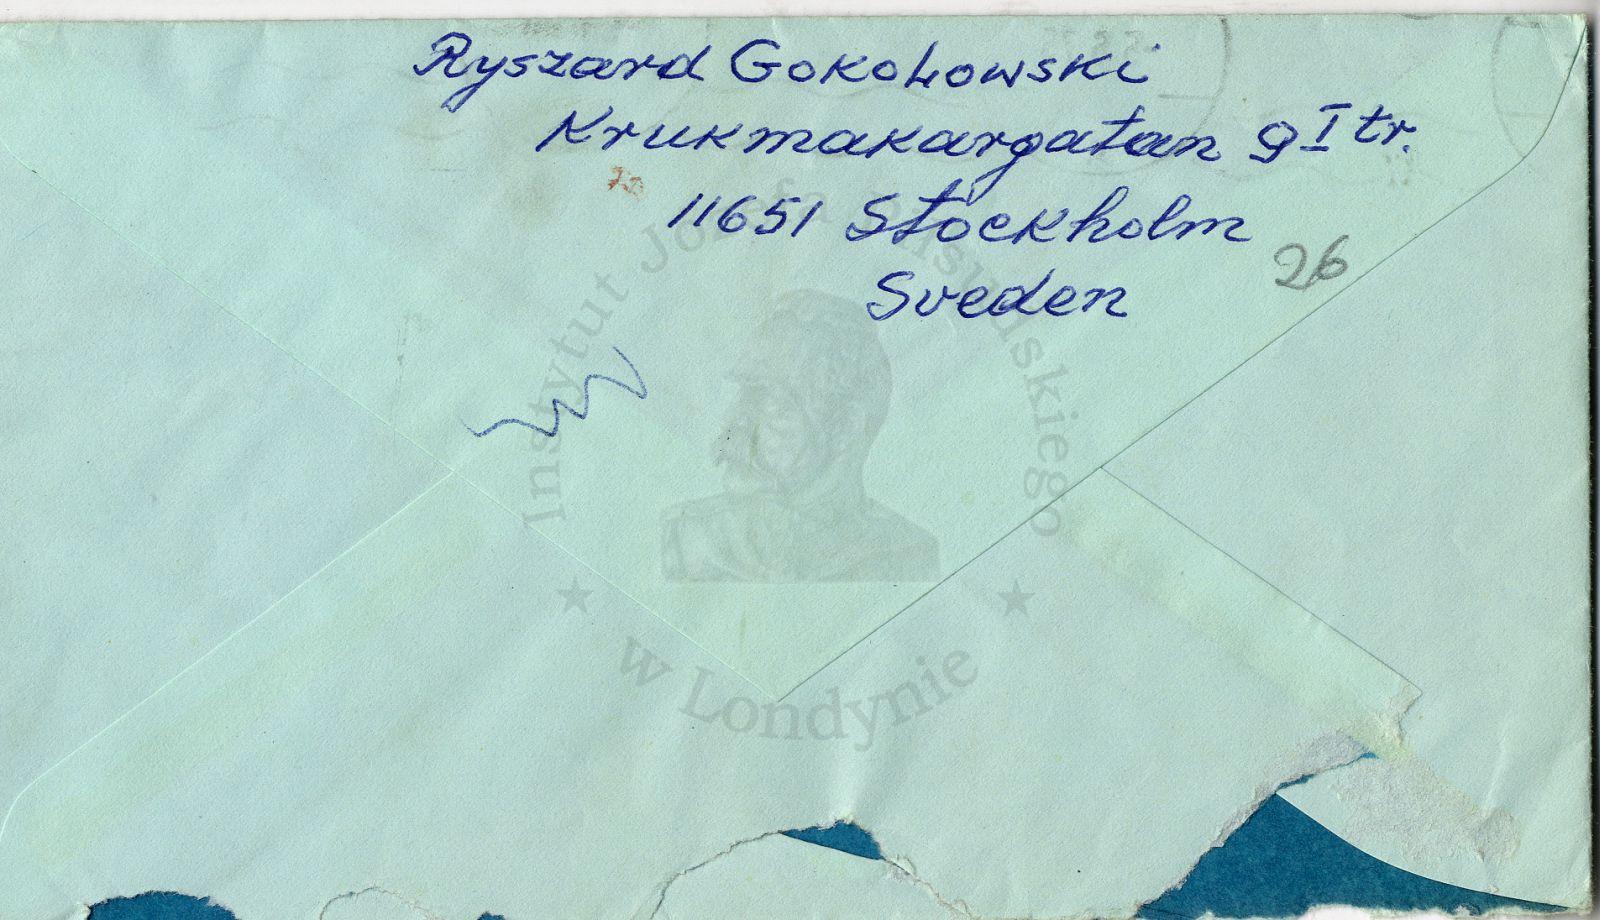 Ryszard Gokołowski
Krukmakargatan 9 I tr.
11651 Stockholm
Sveden
26
Instytut Józefa Piłsudskiego
w Londynie